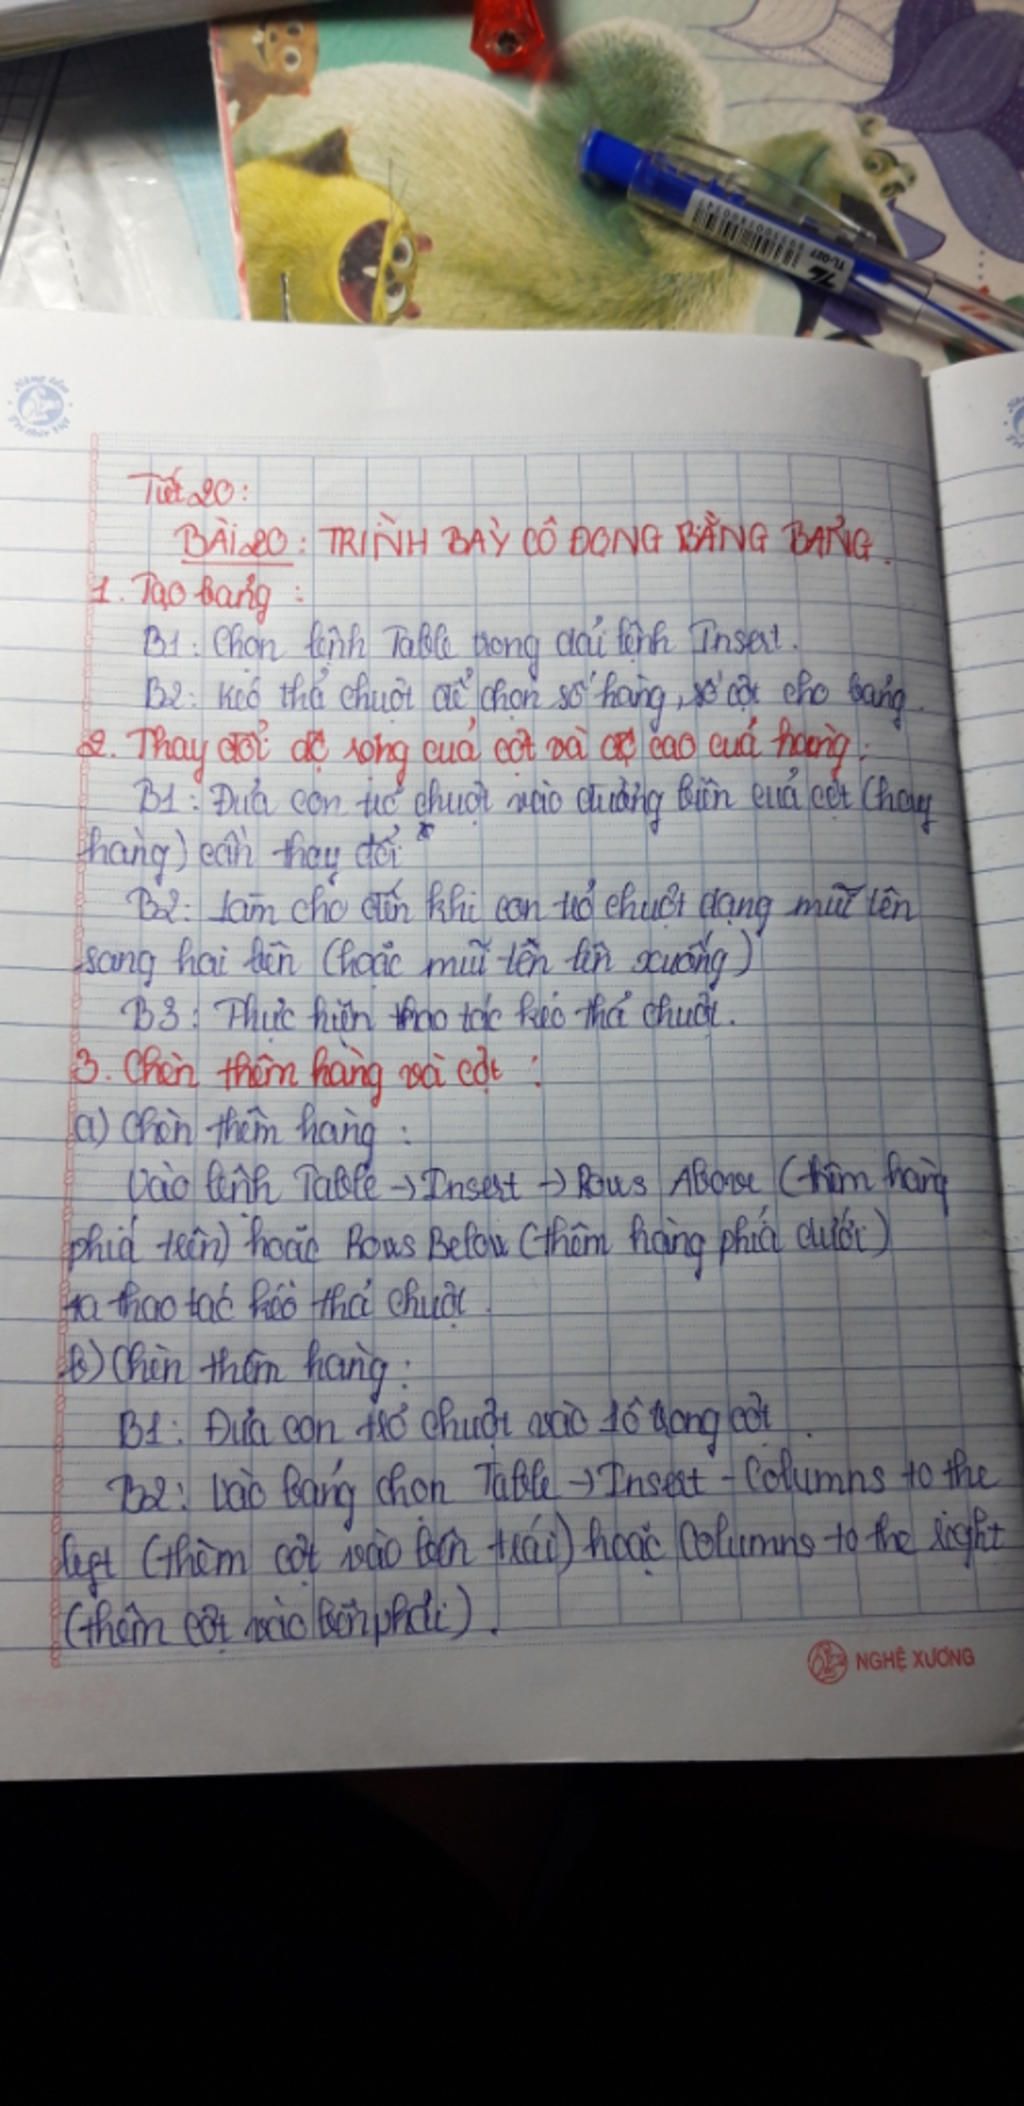 Tiết 20:
BÀI 20: TRÌNH BÀY CÔ ĐỌNG BẰNG BẢNG.
1. Tạo bảng:
B1: Chọn lệnh Table trong dải lệnh Insert.
B2: Kéo thả chuột để chọn số hàng, số cột cho bảng.
2. Thay đổi độ rộng của cột và độ cao của hàng:
B1: Đưa con trỏ chuột vào đường biên của cột (hay
hàng) cần thay đổi
B2: Làm cho đến khi con trỏ chuột dạng mũi tên
sang hai bên (hoặc mũi tên lên xuống)
B3: Thực hiện thao tác kéo thả chuột.
3. Chèn thêm hàng và cột:
a) Chèn thêm hàng:
Vào lệnh Table → Insert → Rows Above (thêm hàng
phía trên) hoặc Rows Below (thêm hàng phía dưới)
ta thao tác kéo thả chuột.
b) Chèn thêm hàng:
B1: Đưa con trỏ chuột vào 1ô trong cột.
B2: Vào bảng chọn Table → Insert - Columns to the
left (thêm cột vào bên trái) hoặc Columns to the right
(thêm cột vào bên phải).
NGHỆ XƯƠNG
TL-027